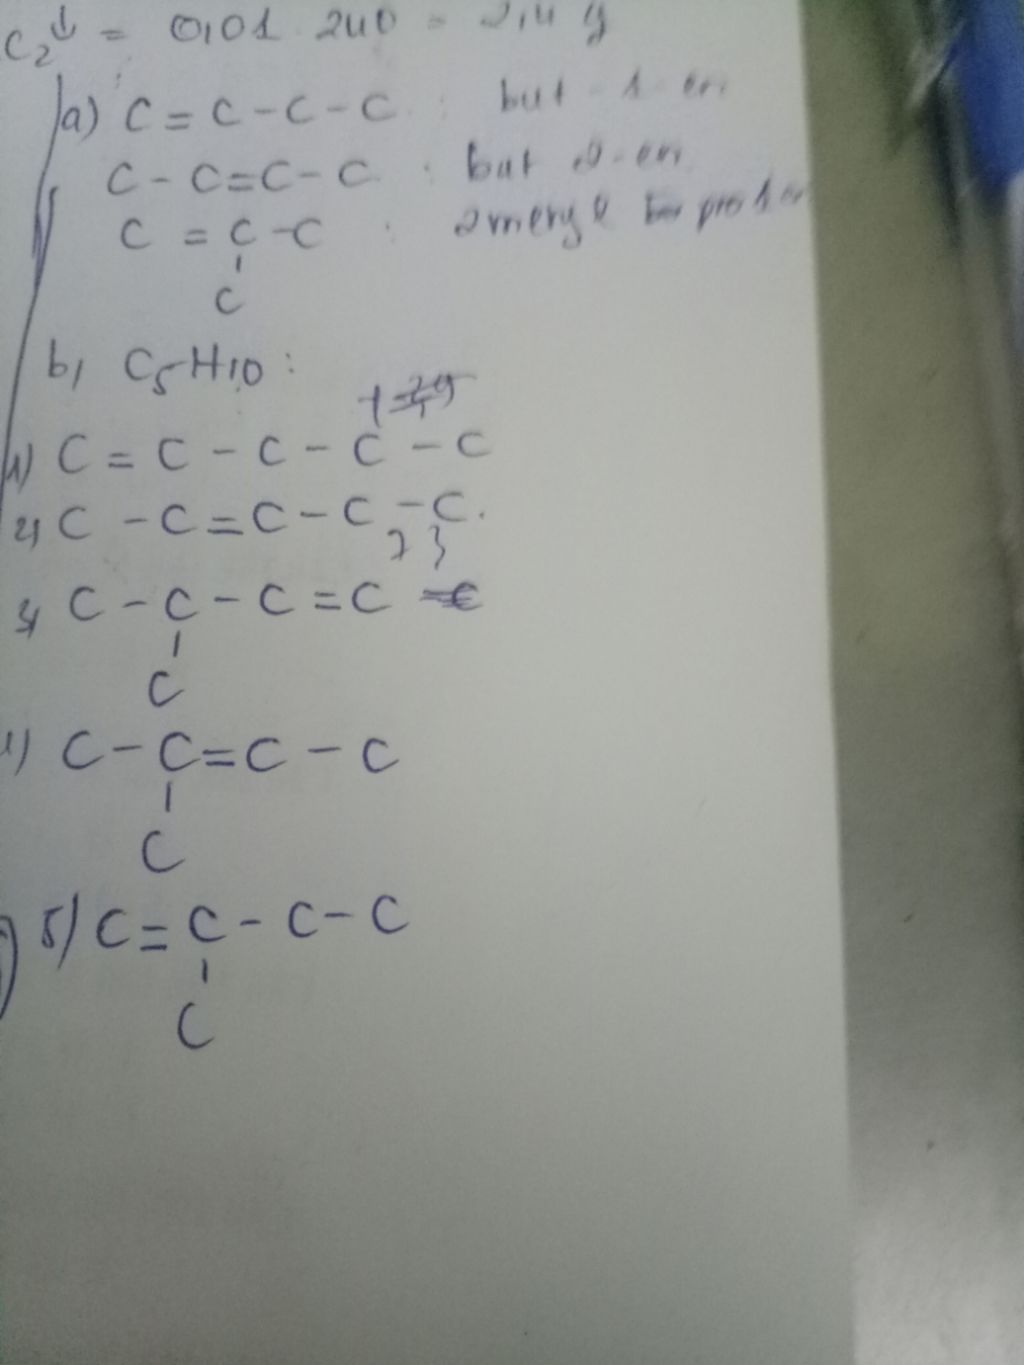 C₂ ↓ = 0,01 . 240 = 2,4 g
a) C = C - C - C : but - 1 - en
C - C = C - C : but 2 - en
C = C - C : 2 metyl pro 1 en
C
b, C5H10 :
1) C = C - C - C - C
2) C - C = C - C - C.
3) C - C - C = C
C
C - C = C - C
C
5) C = C - C - C
C